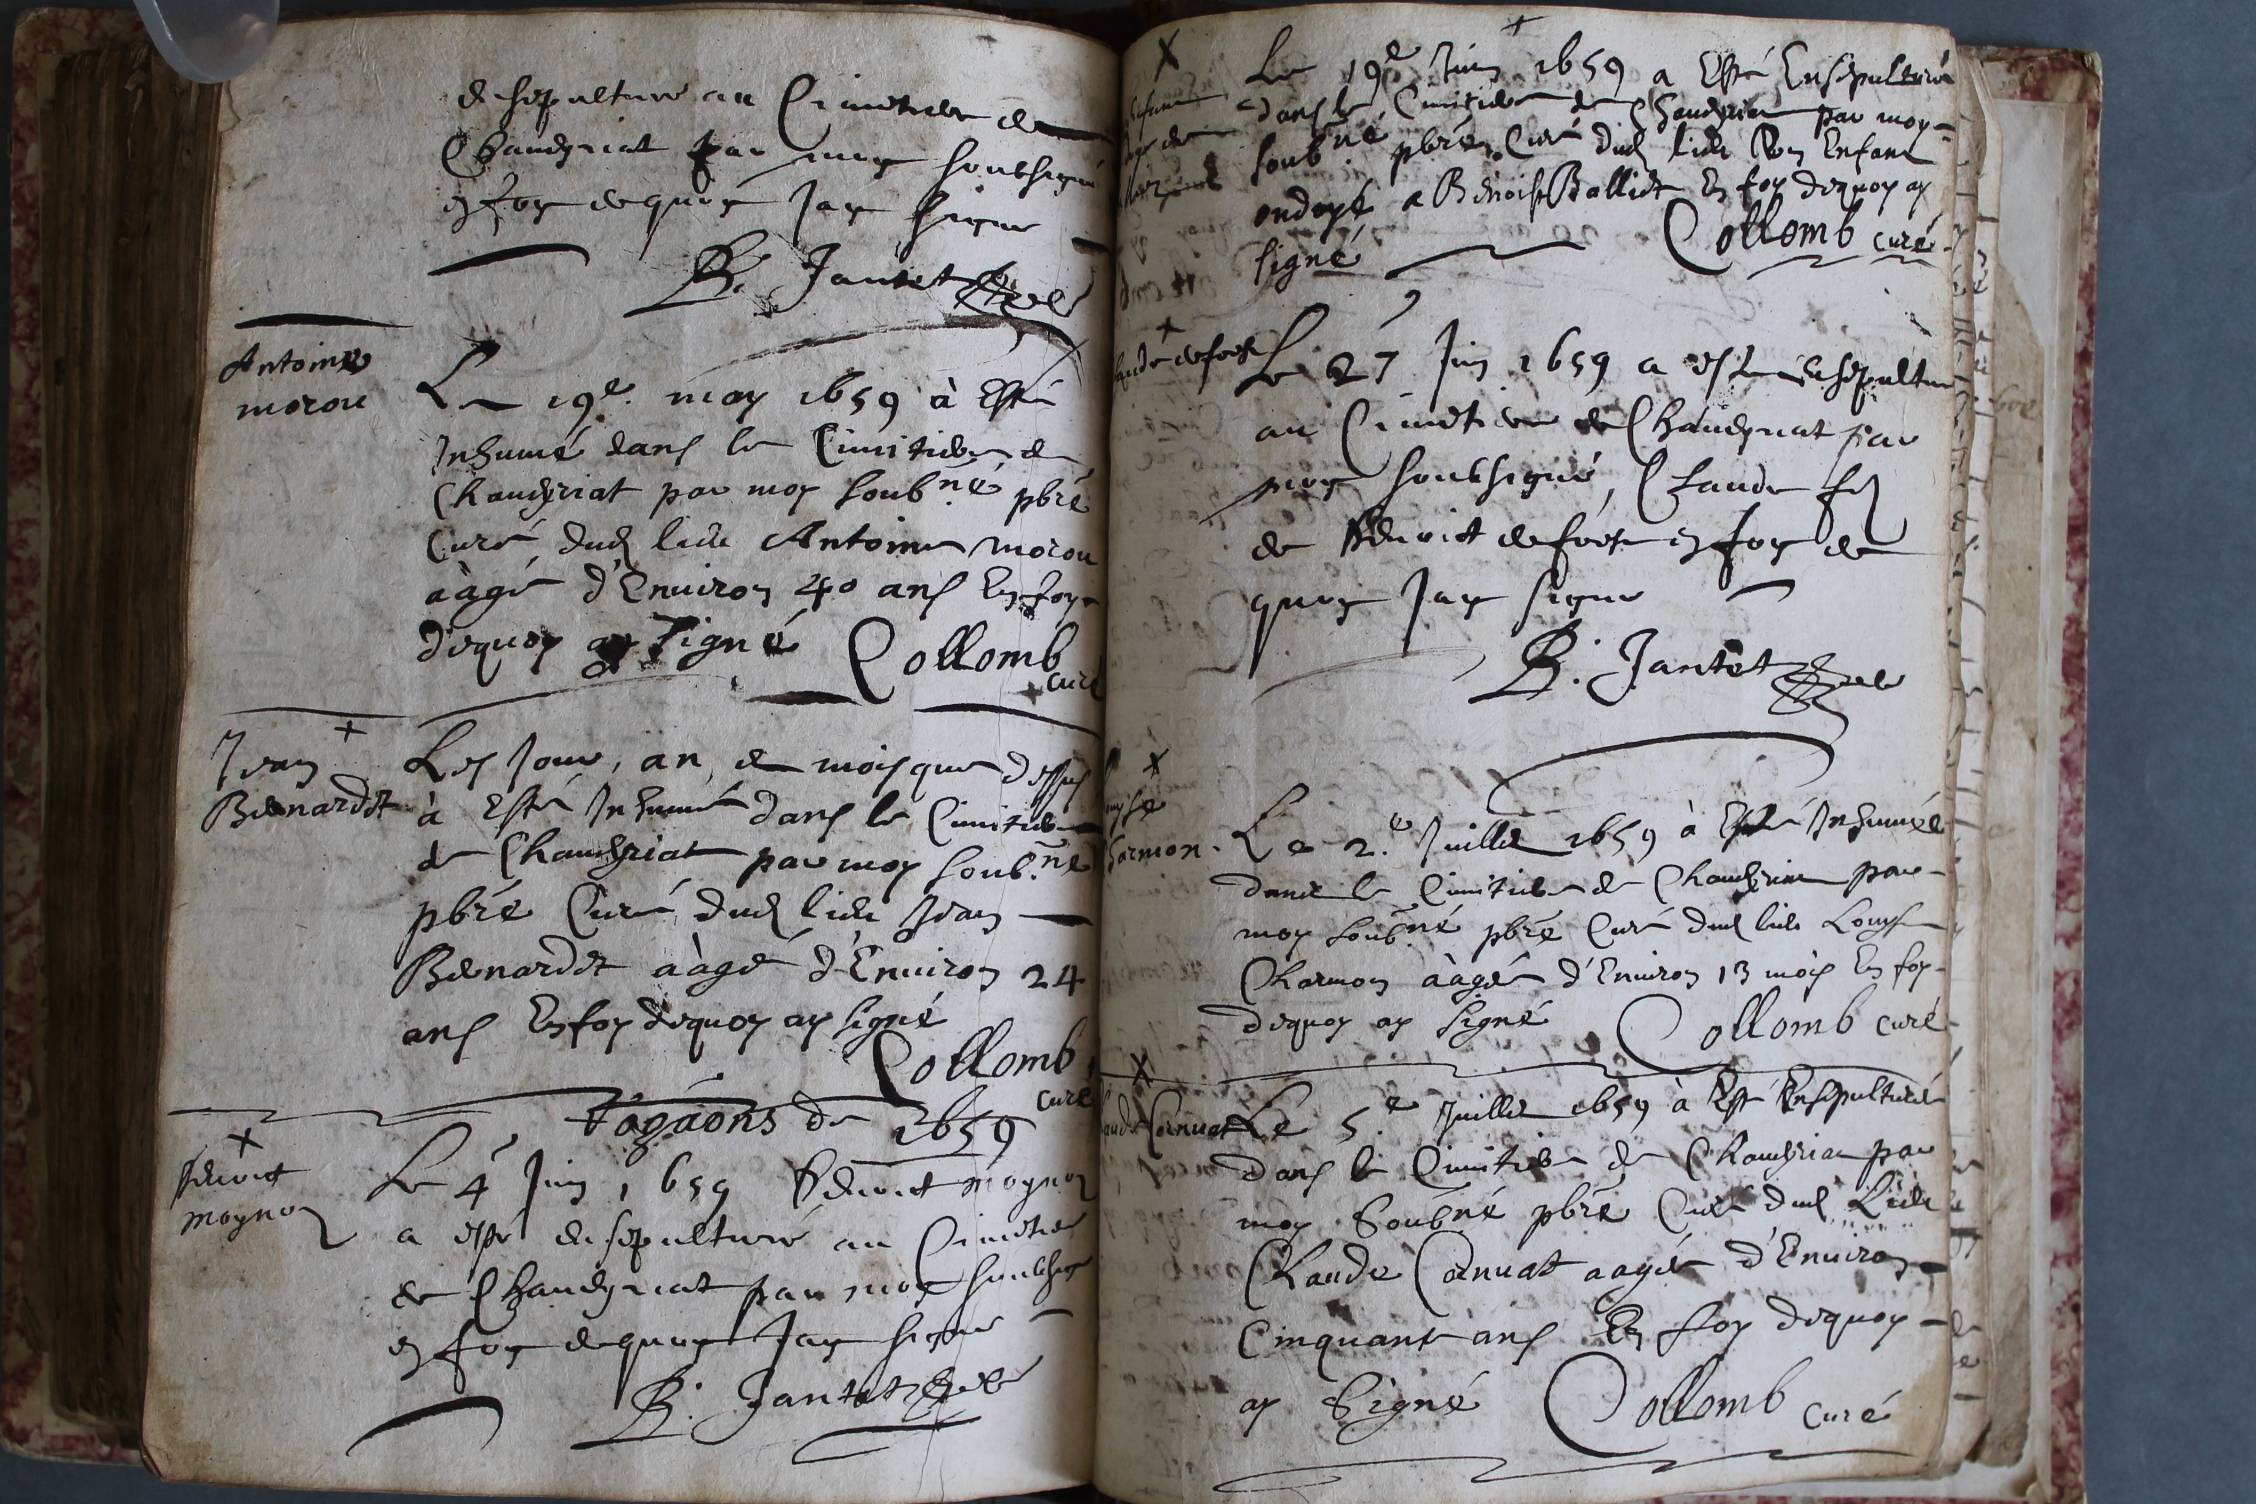 ensepulturé au Cimetiere de
Chaudyriat par moy soubsigné
en foy de quoy Jay signé
B. Jantet
Antoine
morou
Le 19e. may 1659 à Esté
Inhumé dans le Cimitiere de
Chaudyriat par moy soubné pbre
Curé dud lieu Antoine morou
àagé d'Enuiron 40 ans En foy
dequoy ay signé Collomb
curé
Jean
Benardet
Les Jour, an, et mois que dessus
à Esté Inhumé dans le Cimitiere
de Chaudyriat par moy soubné
pbre Curé dud lieu Jean
Benardet àagé d'Enuiron 24
ans En foy dequoy ay signé
Collomb
curé
de 1659
Benoit
moynon
Le 4 Juin 1659 Benoit moynon
a esté ensepulturé au Cimetiere
de Chaudyriat par moy soubsig
en foy de quoy Jay signé
B. Jantet
Le 19e Juin 1659 a Esté Ensepulturé
dans le Cimitiere de Chaudyriat par moy
soubné pbre Curé dud lieu Un Enfant
ondoyé a Benoist Balliet En foy dequoy ay
signé Collomb curé
Le 27 Juin 1659 a esté ensepultur
au Cimetiere de Chaudyriat par
moy soubsigné, Claude fils
de Benoit deforet en foy de
quoy Jay signé
B. Jantet
Le 2.e Juillet 1659 à Esté Inhumée
dans le Cimitiere de Chaudyriat par
moy soubné pbre Curé dud lieu Louyse
Charmon àagée d'Enuiron 13 mois En foy
dequoy ay signé Collomb curé
Le 5.e Juillet 1659 à Esté Ensepulturé
dans le Cimitiere de Chaudyriat par
moy Soubné pbre Curé dud Lieu
Claude Cornuat aagé d'Enuiron
Cinquante ans En foy dequoy
ay Signé Collomb curé